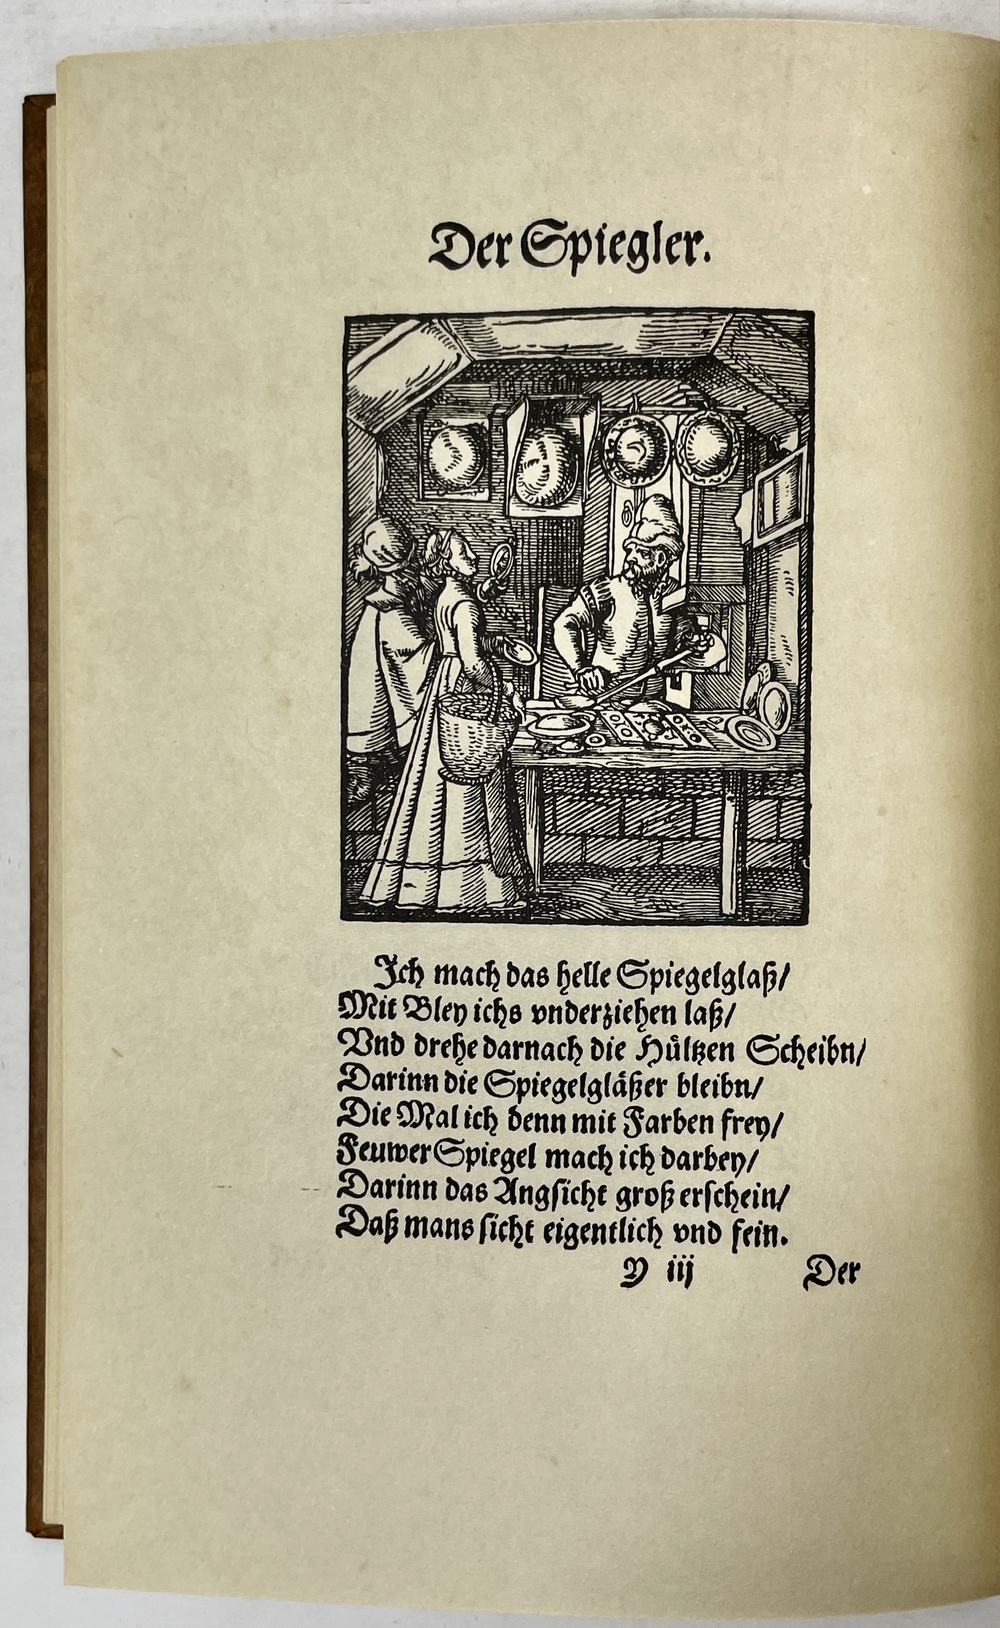 Der Spiegler.
Ich mach das helle Spiegelglaß/
Mit Bley ichs vnderziehen laß/
Vnd drehe darnach die Hültzen Scheibn/
Darinn die Spiegelgläßer bleibn/
Die Mal ich denn mit Farben frey/
Feuwer Spiegel mach ich darbey/
Darinn das Angsicht groß erschein/
Daß mans sicht eigentlich vnd fein.
Y iij Der